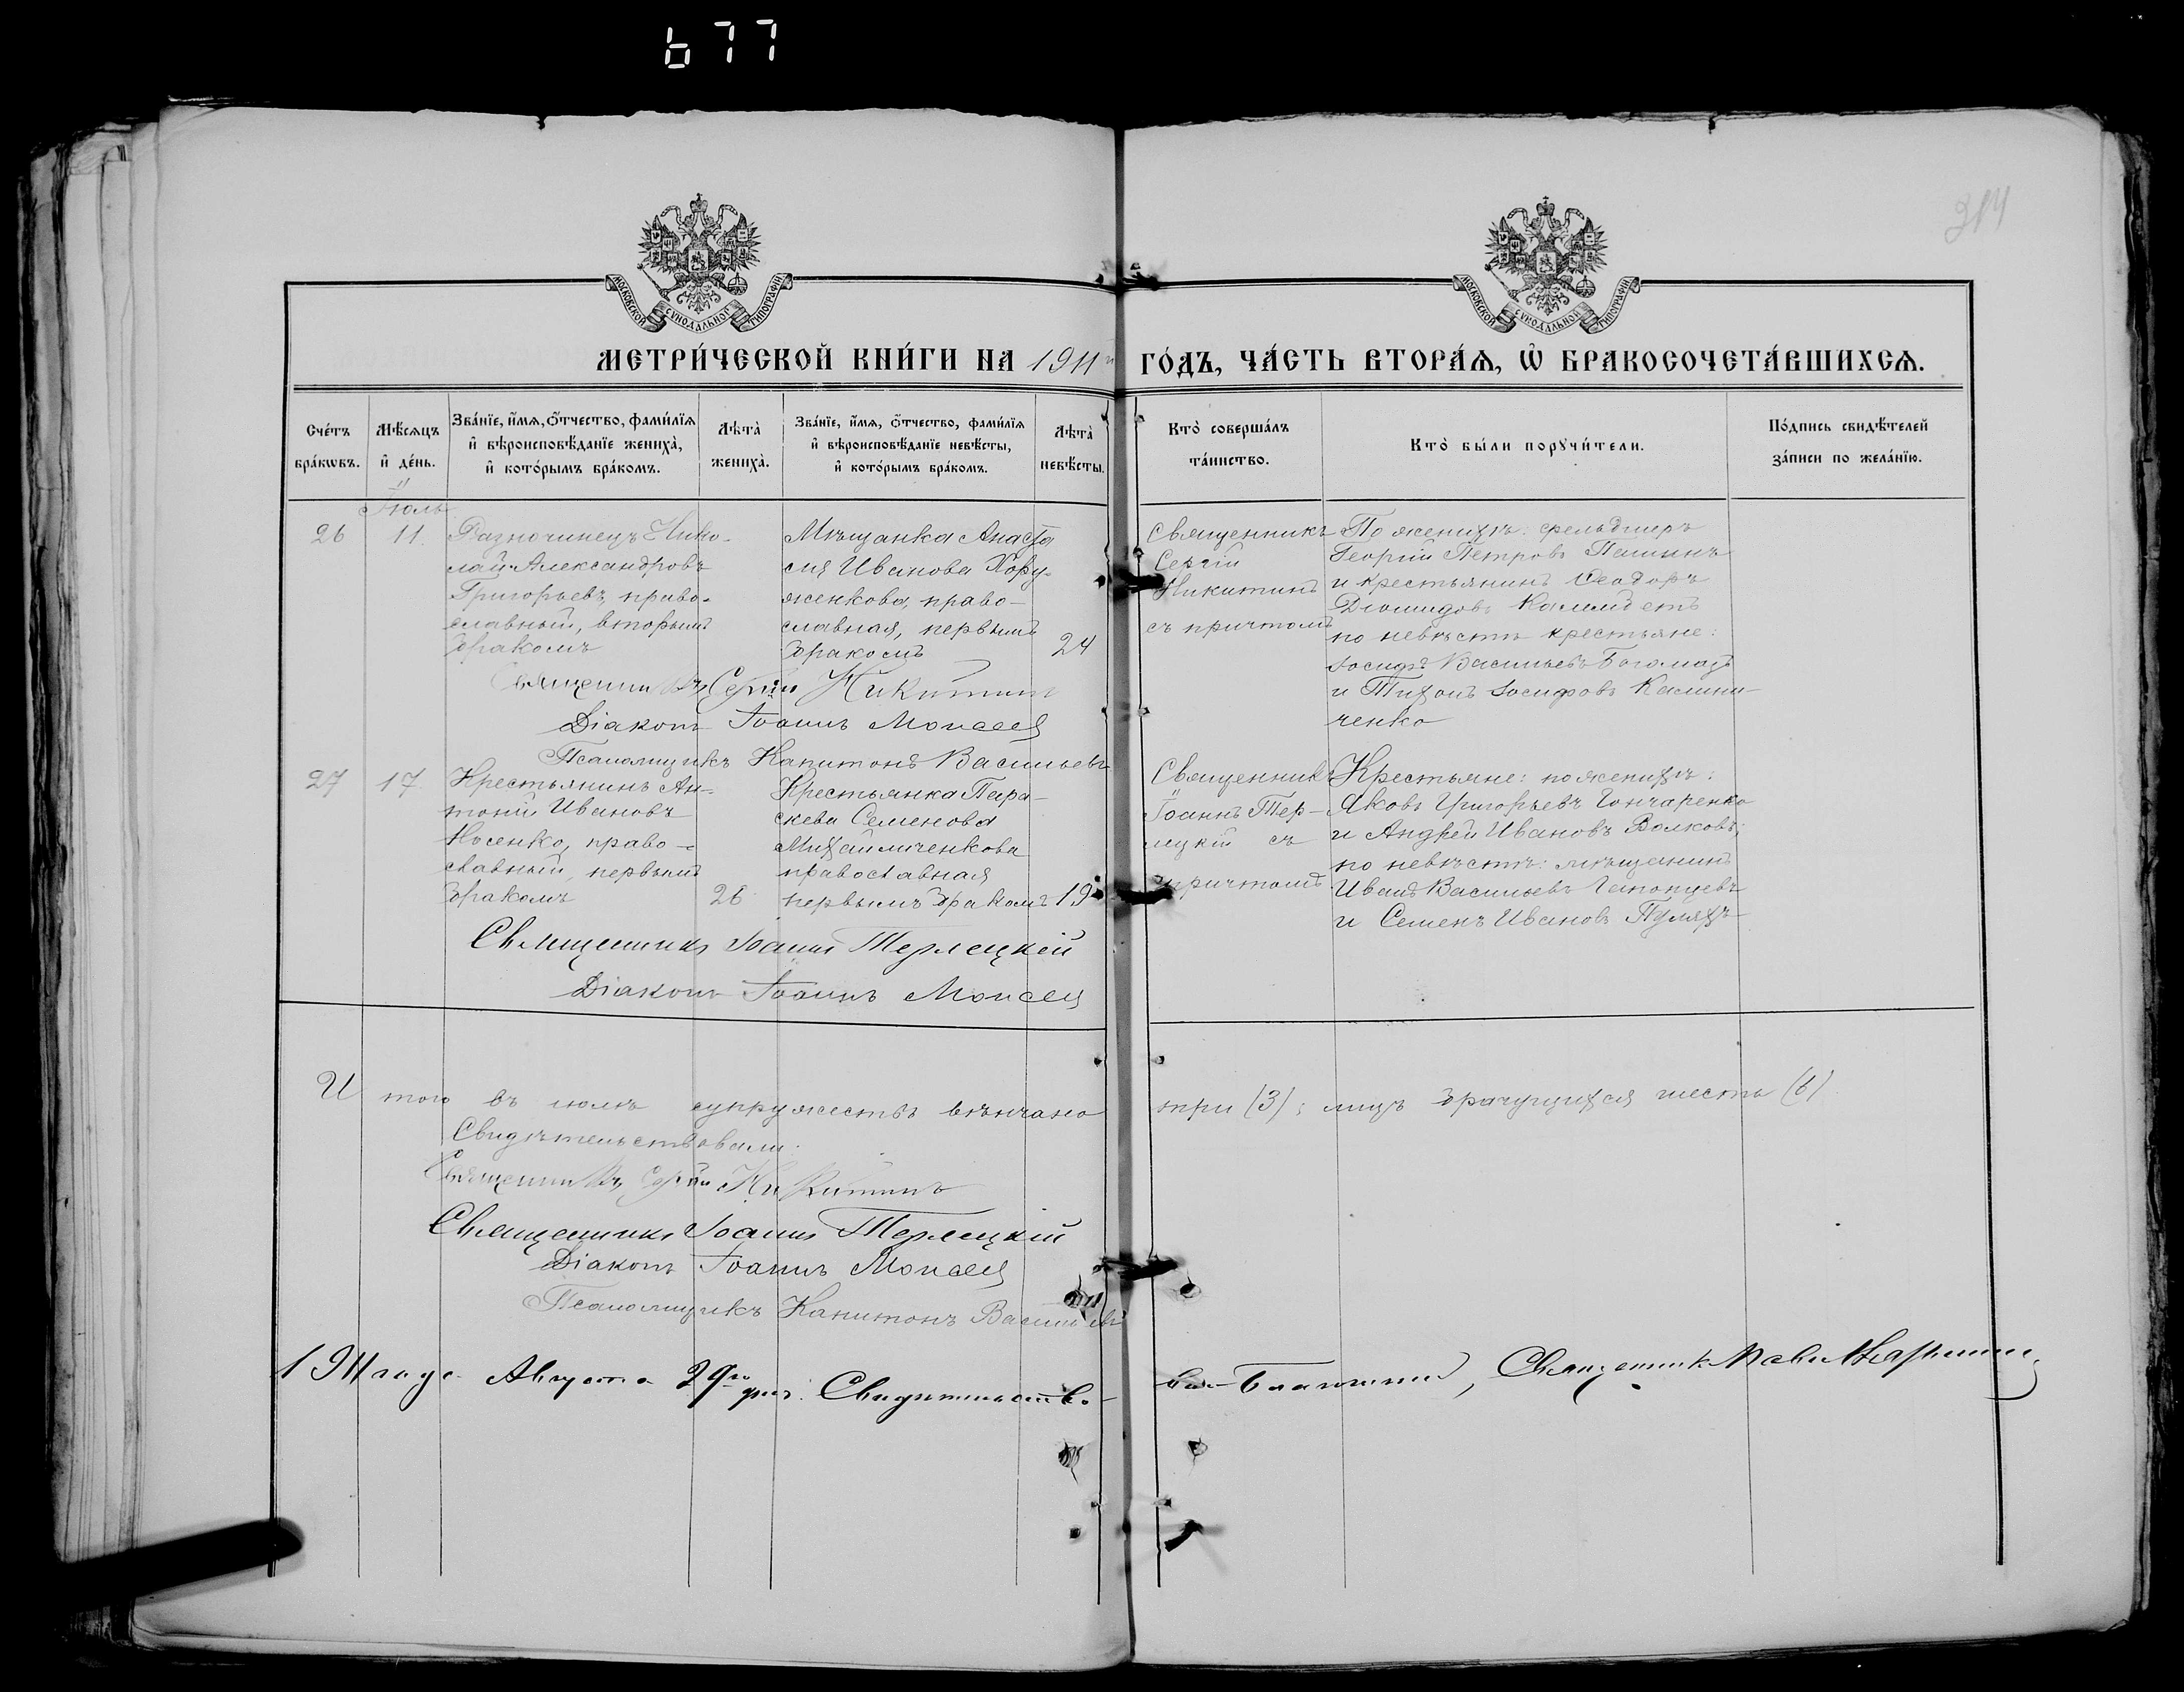 677
314
МОСКОВСКОЙ СѴНОДАЛЬНОЙ ТИПОГРАФІИ
МОСКОВСКОЙ СѴНОДАЛЬНОЙ ТИПОГРАФІИ
МЕТРИ́ЧЕСКОЙ КНИ́ГИ НА 1911й ГО́ДЪ, ЧА́СТЬ ВТОРА́Ѧ, Ѡ҆ БРАКОСОЧЕТА́ВШИХСѦ.
Сче́тъ бра́кѡвъ.
Мѣ́сѧцъ и҆ де́нь.
Зва́нїе, и҆́мѧ, ѻ҆́тчество, фами́лїѧ и҆ вѣроисповѣ́данїе женихà, и҆ кото́рымъ бра́комъ.
Лѣ́та̀ женихà.
Зва́нїе, и҆́мѧ, ѻ҆́тчество, фами́лїѧ и҆ вѣроисповѣ́данїе невѣ́сты, и҆ кото́рымъ бра́комъ.
Лѣ́та̀ невѣ́сты.
Кто̀ соверша́лъ та́инство.
Кто̀ бы́ли порꙋчи́тели.
По́дпись свидѣ́телей за́писи по жела́нїю.
Іюль
26
11.
Разночинецъ Нико-
лай Александровъ
Григорьевъ, право-
славный, вторымъ
бракомъ
Мѣщанка Анаста
сія Иванова Хору-
женкова, право-
славная, первымъ
бракомъ
24
Священникъ
Сергій
Никитинъ
съ причтомъ
По женихѣ: фельдшеръ
Георгій Петровъ Пашинъ
и крестьянинъ Ѳеодоръ
Діомидовъ
по невѣстѣ крестьяне:
Іосифъ Васильевъ Богомазъ
и Тихонъ Іосифовъ Калини-
ченко
Священникъ Сергій Никитинъ
Діаконъ Іоаннъ Моисеев
Псаломщикъ Капитонъ Васильевъ
27
17
Крестьянинъ Ан-
тоній Ивановъ
Носенко, право-
славный, первымъ
бракомъ
26
Крестьянка Пара-
скева Семенова
Михайличенкова
православная
первымъ бракомъ
19
Священникъ
Іоаннъ Тер-
лецкій съ
причтомъ
Крестьяне: по женихѣ:
Яковъ Григорьевъ Гончаренко
и Андрей Ивановъ Волковъ;
по невѣстѣ: мѣщанинъ
Иванъ Васильевъ
и Семенъ Ивановъ Пуляхъ
Священникъ Іоаннъ Терлецкій
Діаконъ Іоаннъ Моисеев
Итого въ іюлѣ супружествъ вѣнчано три (3); лицъ брачущихся шесть (6)
Свидѣтельствовали:
Священникъ Сергій Никитинъ
Священникъ Іоаннъ Терлецкій
Діаконъ Іоаннъ Моисеев
Псаломщикъ Капитонъ Васильевъ
1911 года Августа 29го дня. Свидѣтельство-
валъ Благочинный, Священникъ